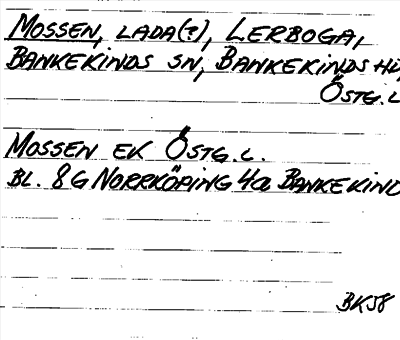 MOSSEN, LADA(?), LERBOGA,
BANKEKINDS SN, BANKEKINDS HD,
ÖSTG.L
MOSSEN EK ÖSTG.L.
BL. 8G NORRKÖPING 4a BANKEKIND
BK58